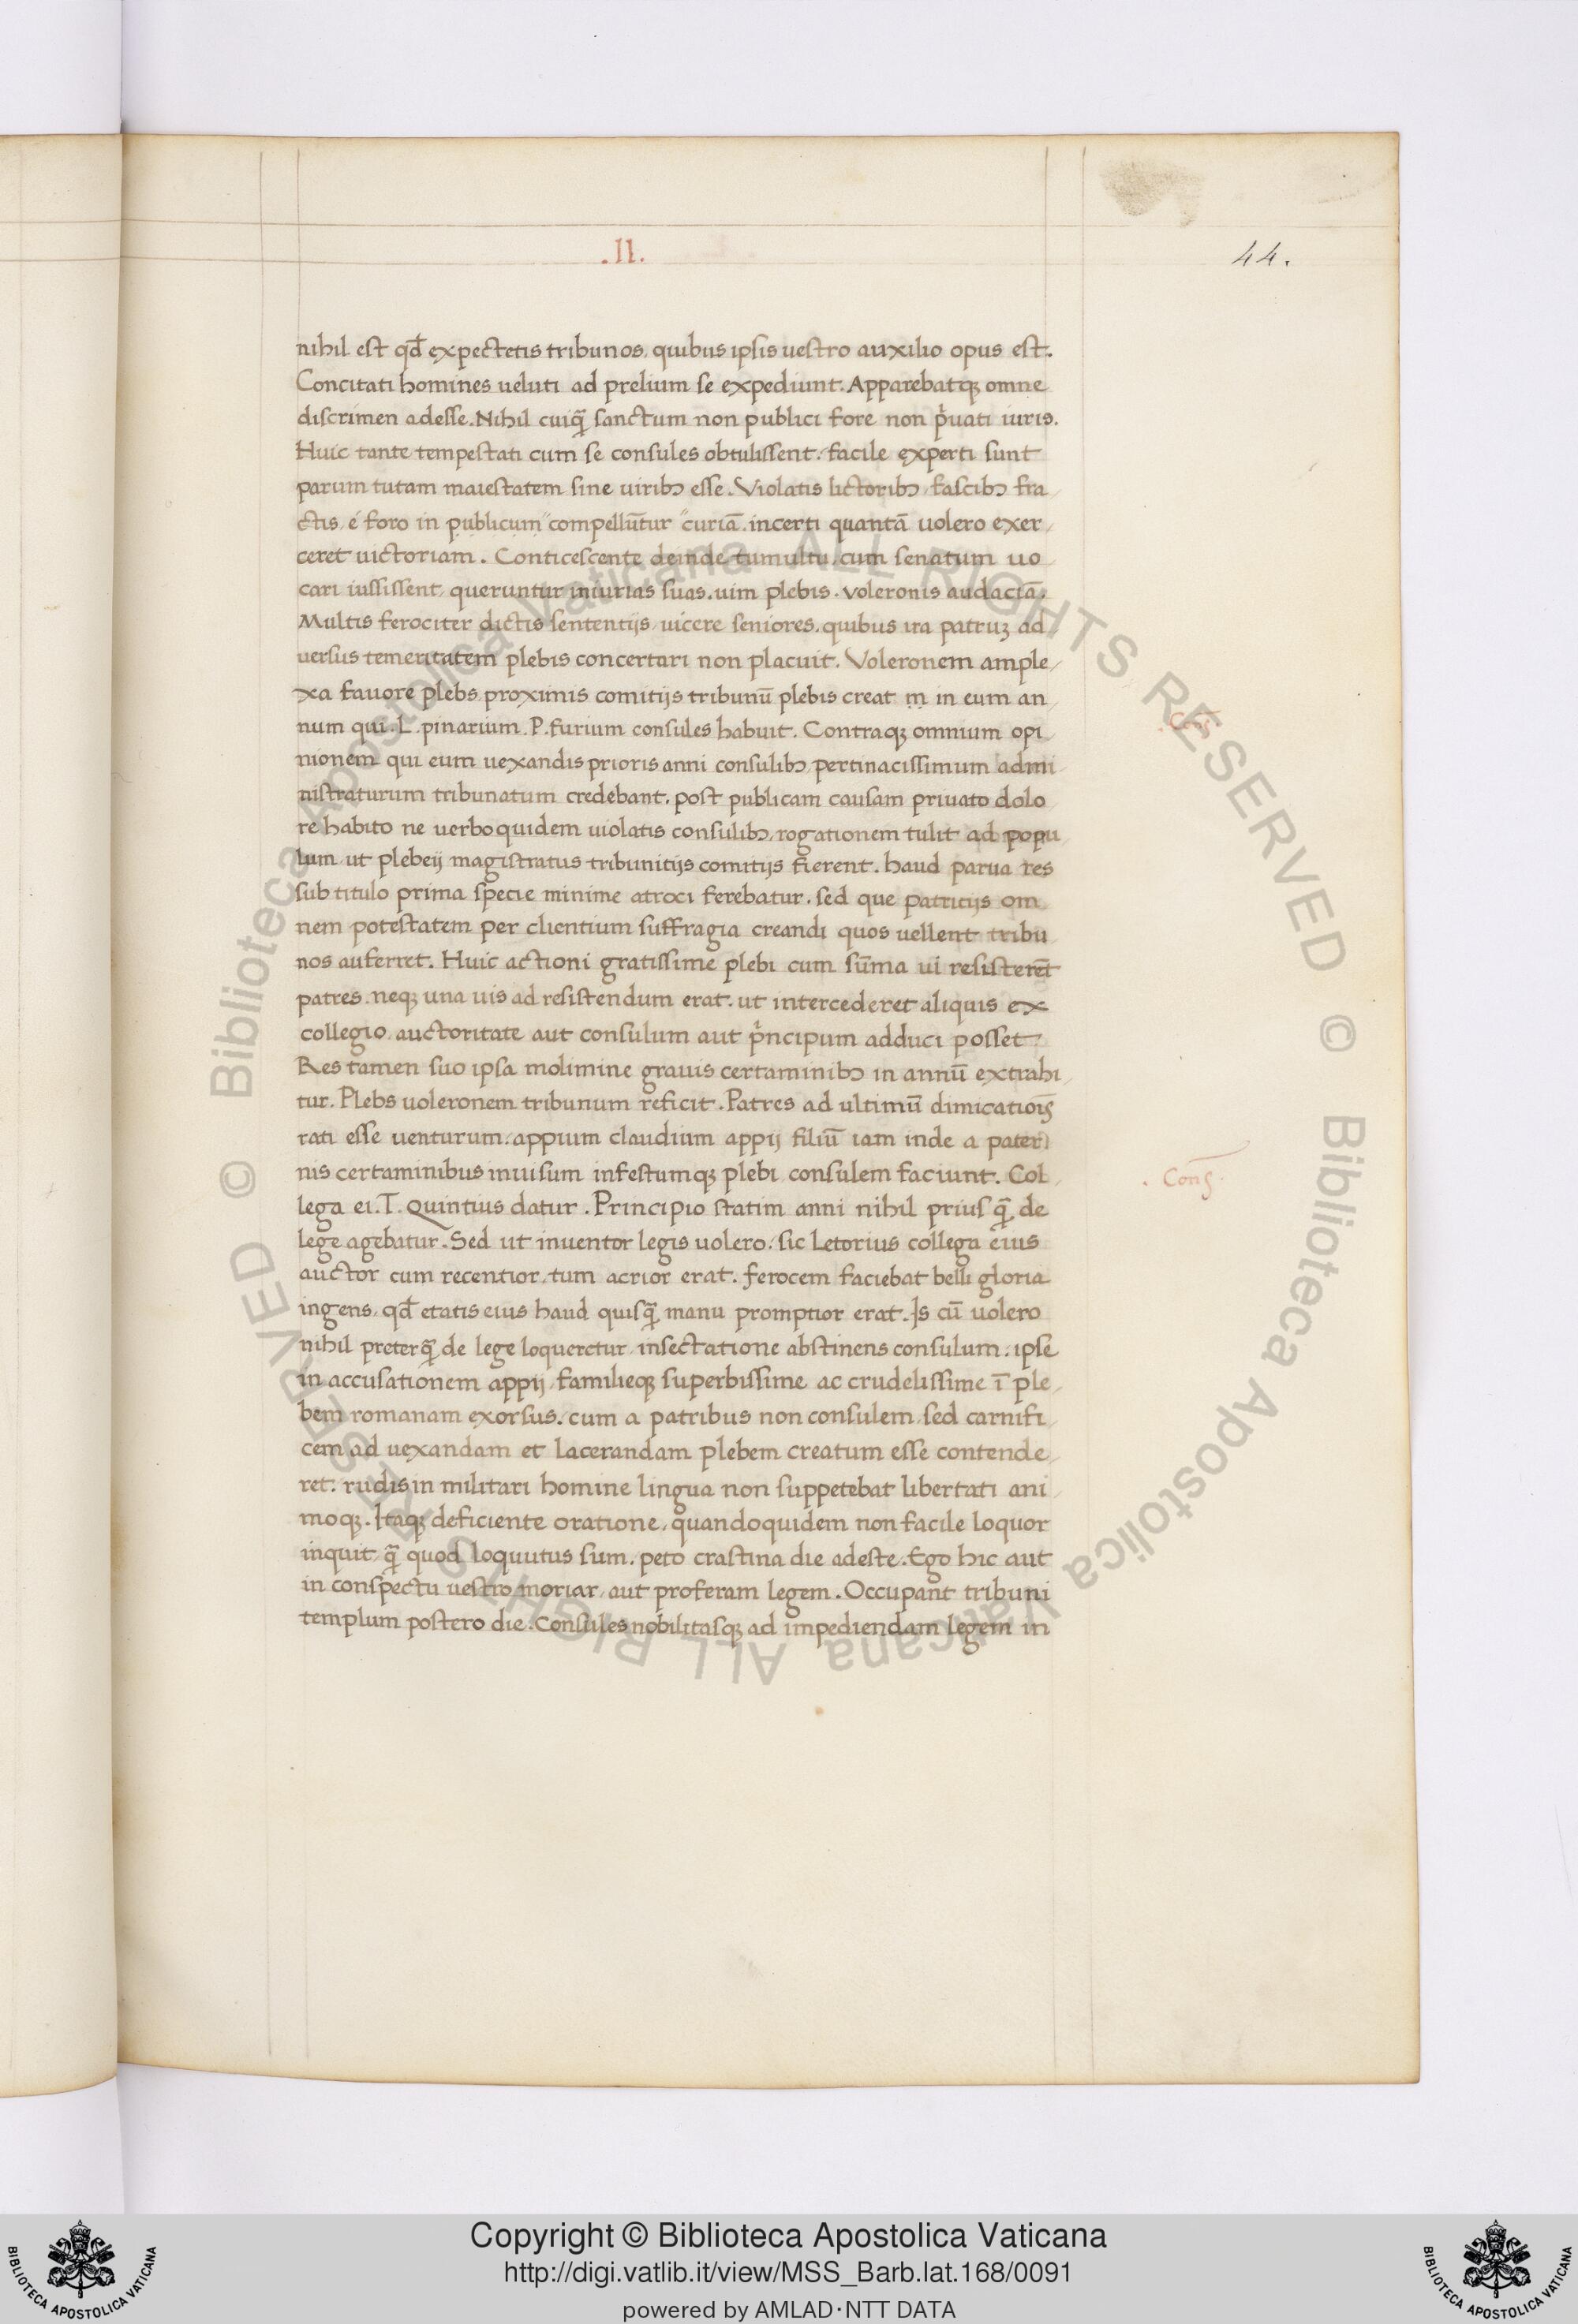 .II.
44.
nihil est qd̄ expectetis tribunos, quibus ipsis uestro auxilio opus est.
Concitati homines ueluti ad prelium se expediunt. Apparebatqꝫ omne
discrimen adesse. Nihil cuiqꝫ̄ sanctum non publici fore non pͥuati iuris.
Huic tante tempestati cum se consules obtulissent, facile experti sunt
parum tutam maiestatem sine uiribꝫ esse. Violatis lictoribꝫ, fascibꝫ fra
ctis, é foro in publicum compellūtur curiā. incerti quantā uolero exer
ceret uictoriam. Conticescente deinde tumultu, cum senatum uo
cari iussissent, queruntur iniurias suas. uim plebis. voleronis audaciā.
Multis ferociter dictis sententijs, uicere seniores. quibus ira patruꝫ ad
uersus temeritatem plebis concertari non placuit. Voleronem ample
xa fauore plebs proximis comitijs tribunū plebis creat m in eum an
num qui. L. pinarium. P. furium consules habuit. Contraqꝫ omnium opi
nionem qui eum uexandis prioris anni consulibꝫ pertinacissimum admi
nistraturum tribunatum credebant. post publicam causam priuato dolo
re habito ne uerbo quidem uiolatis consulibꝫ, rogationem tulit ad popu
lum ut plebeij magistratus tribunitijs comitijs fierent. haud parua res
sub titulo prima specie minime atroci ferebatur. sed que patritijs om
nem potestatem per clientium suffragia creandi quos uellent tribu
nos auferret. Huic actioni gratissime plebi cum sūma ui resisterēt
patres. neqꝫ una uis ad resistendum erat. ut intercederet aliquis ex
collegio auctoritate aut consulum aut pͥncipum adduci posset
Res tamen suo ipsa molimine grauis certaminibꝫ in annū extrahi
tur. Plebs uoleronem tribunum reficit. Patres ad ultimū dimicatiōis
rati esse uenturum. appium claudium appij filiū iam inde a pater
nis certaminibus inuisum infestumqꝫ plebi consulem faciunt. Col
lega ei. T. Quintius datur. Principio statim anni nihil priusqꝫ̄ de
lege agebatur. Sed ut inuentor legis uolero. sic Letorius collega eius
auctor cum recentior, tum acrior erat. ferocem faciebat belli gloria
ingens, qd̄ etatis eius haud quisqꝫ̄ manu promptior erat. Is cū uolero
nihil preterqꝫ̄ de lege loqueretur, insectatione abstinens consulum. ipse
in accusationem appij, familieqꝫ superbissime ac crudelissime ī ple
bem romanam exorsus. cum a patribus non consulem, sed carnifi
cem ad uexandam et lacerandam plebem creatum esse contende
ret. rudis in militari homine lingua non suppetebat libertati ani
moqꝫ. Itaqꝫ deficiente oratione, quandoquidem non facile loquor
inquit qꝫ̄ quod loquutus sum. peto crastina die adeste. Ego hic aut
in conspectu uestro moriar, aut proferam legem. Occupant tribuni
templum postero die. Consules nobilitasqꝫ ad impediendam legem in
Cons
Cons
© Biblioteca Apostolica Vaticana ALL RIGHTS RESERVED © Biblioteca Apostolica Vaticana ALL RIGHTS RESERVED
Copyright © Biblioteca Apostolica Vaticana
http://digi.vatlib.it/view/MSS_Barb.lat.168/0091
powered by AMLAD·NTT DATA
BIBLIOTECA APOSTOLICA VATICANA
BIBLIOTECA APOSTOLICA VATICANA